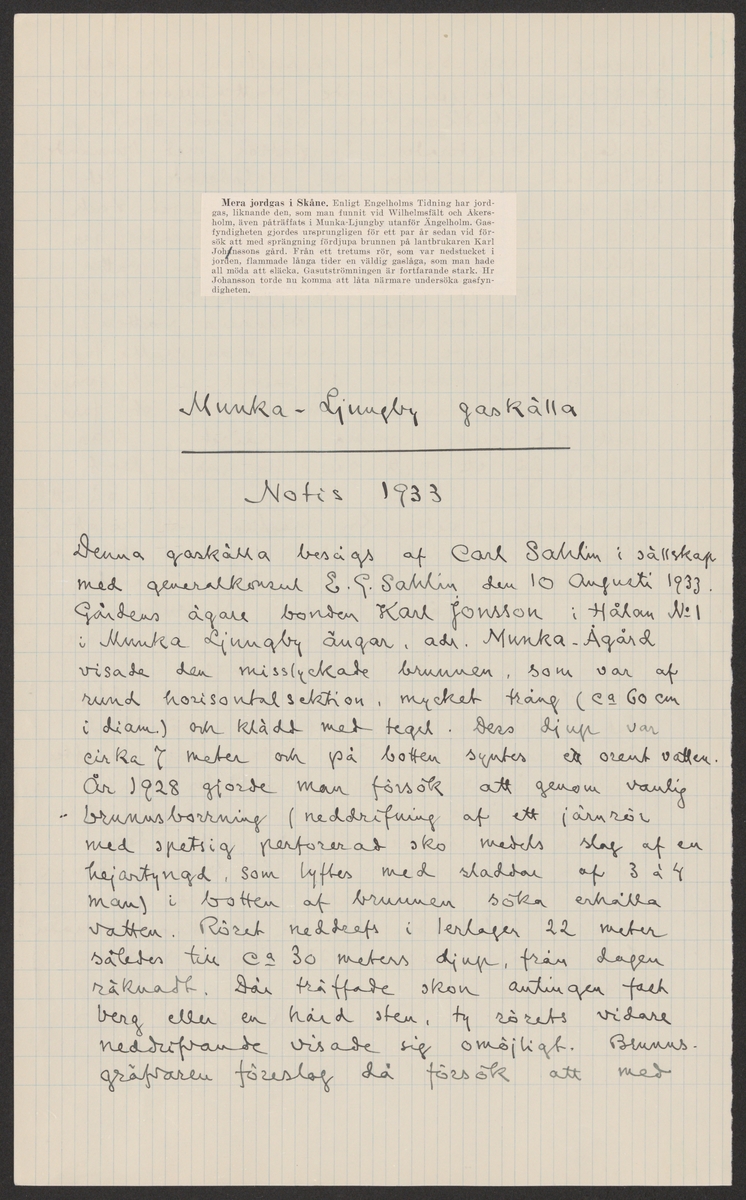 Mera jordgas i Skåne. Enligt Engelholms Tidning har jord-
gas, liknande den, som man funnit vid Wilhelmsfält och Åkers-
holm, även påträffats i Munka-Ljungby utanför Ängelholm. Gas-
fyndigheten gjordes ursprungligen för ett par år sedan vid för-
sök att med sprängning fördjupa brunnen på lantbrukaren Karl
Johnssons gård. Från ett tretums rör, som var nedstucket i
jorden, flammade långa tider en väldig gaslåga, som man hade
all möda att släcka. Gasutströmningen är fortfarande stark. Hr
Johansson torde nu komma att låta närmare undersöka gasfyn-
digheten.
Munka-Ljungby gaskälla
Notis 1933
Denna gaskälla besågs af Carl Sahlin i sällskap
med generalkonsul E. G. Sahlin den 10 Augusti 1933.
Gårdens ägare bonden Karl Jonsson i Hålan No 1
i Munka Ljungby ängar, adr. Munka-Ågård
visade den misslyckade brunnen, som var af
rund horisontalsektion, mycket trång (ca 60 cm
i diam.) och klädd med tegel. Dess djup var
cirka 7 meter och på botten syntes orent vatten.
År 1928 gjorde man försök att genom vanlig
brunnsborrning (neddrifning af ett järnrör
med spetsig perforerad sko medels slag af en
hejartyngd, som lyftes med sladdar af 3 à 4
man) i botten af brunnen söka erhålla
vatten. Röret neddrefs i lerlager 22 meter
således till ca 30 meters djup, från dagen
räknadt. Där träffade skon antingen fast
berg eller en hård sten, ty rörets vidare
neddrifvande visade sig omöjligt. Brunns-
gräfvaren föreslog då försök att med